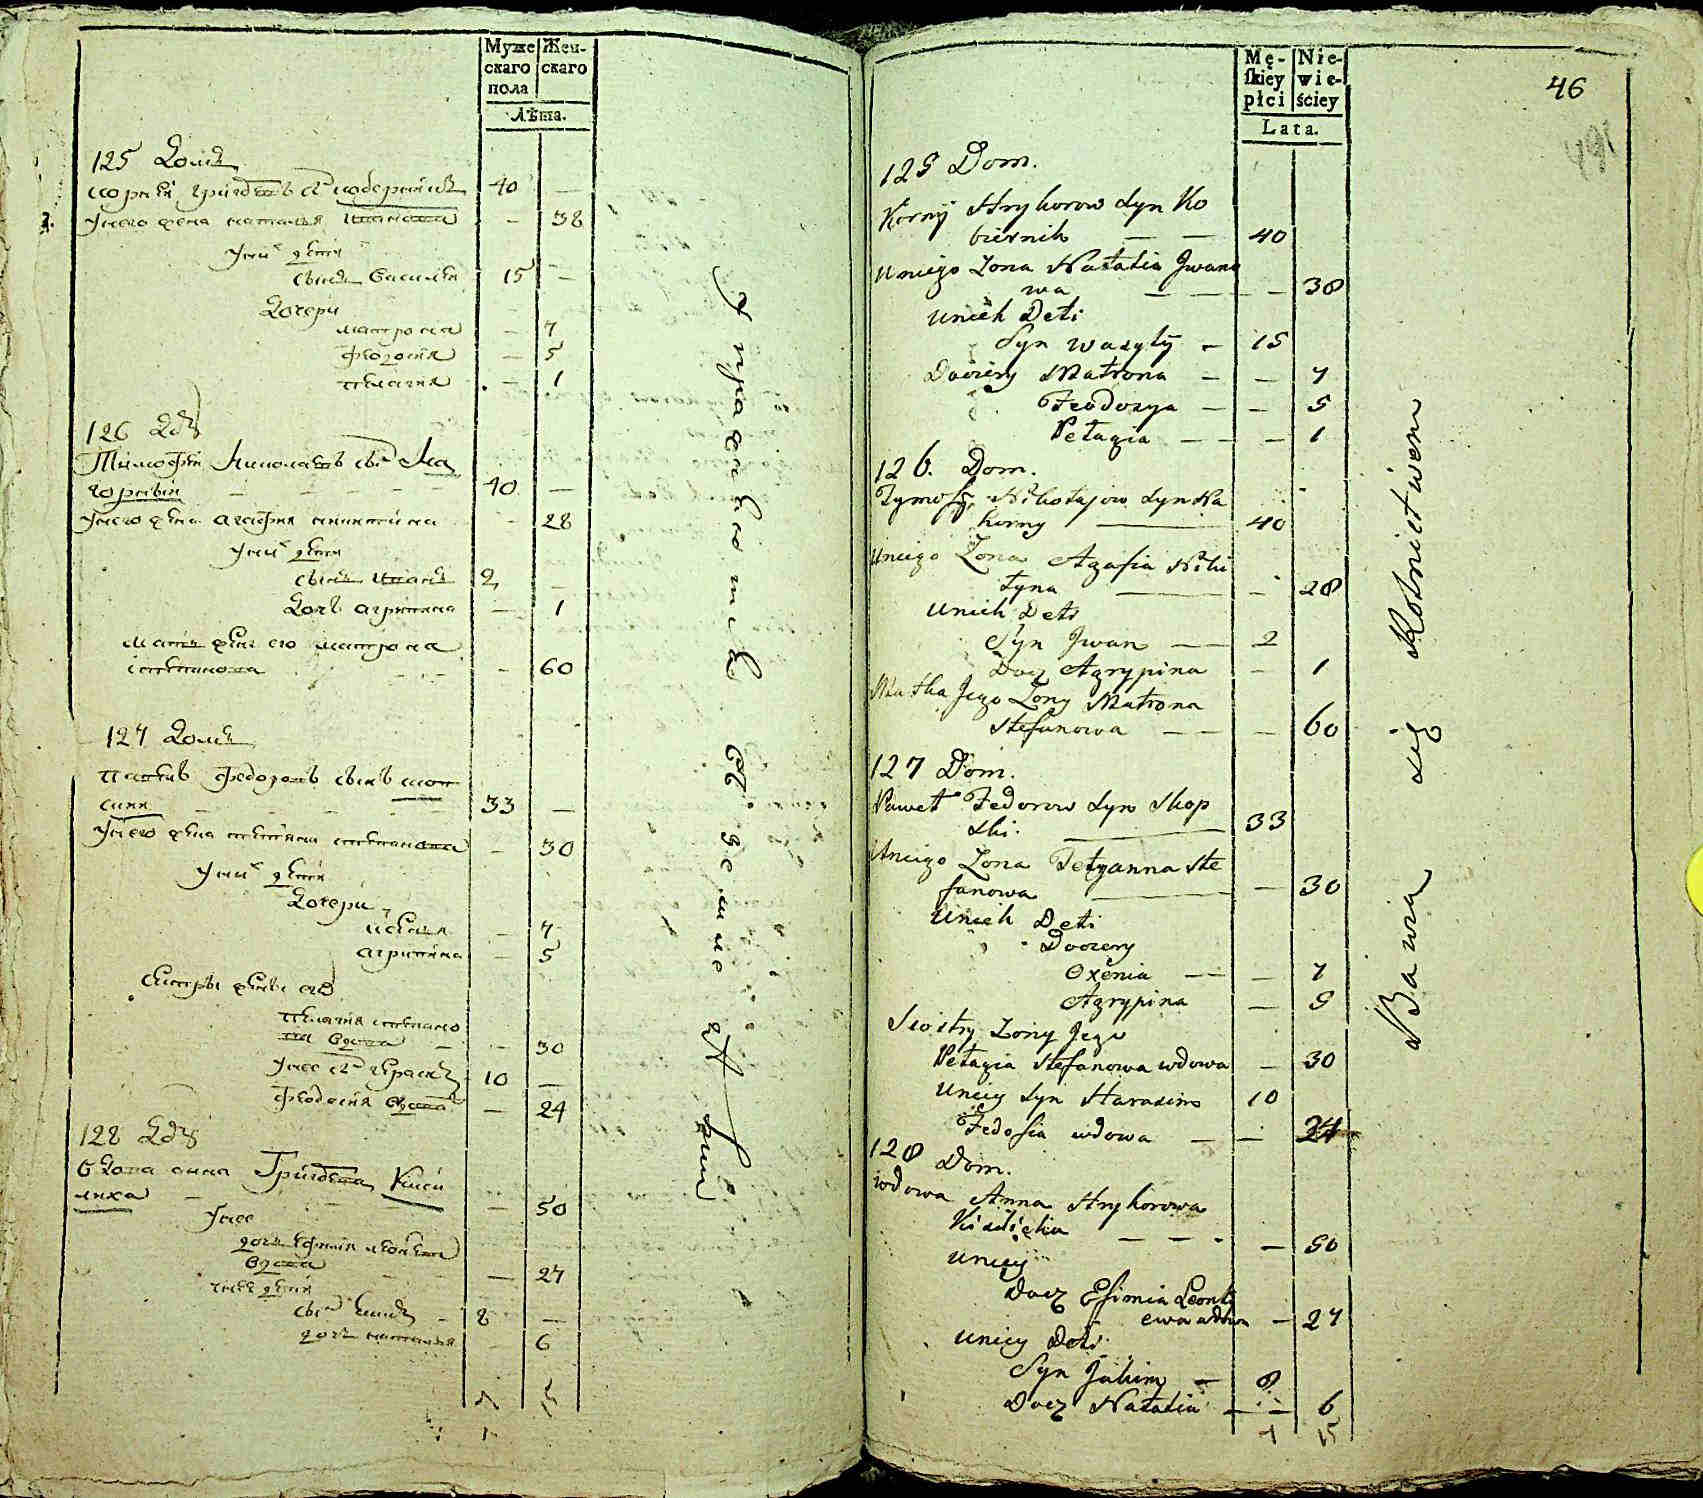 Муже
скаго
пола
Жен-
скаго
Лѣта.
125 Домъ
корнѣй григоровъ сн кобернікъ 40 —
у него жена наталья иванова — 38
у них дѣти
сынъ василій 15 —
дочери
матрона — 7
феодосія — 5
пелагия — 1
126 дом
Тимофей Николаевъ сн На
горный — — — 40 —
у него жена агафия никитина — 28
у них дѣти
сынъ иванъ 2 —
дочь агрипина — 1
мать жены его матрона
степанова — 60
127 домъ
павелъ федоровъ сынъ скоп
ский 33 —
у него жена татияна степанова — 30
у них дѣти
дочери
агрипина — 5
сестры жены его
пелагия степано
ва вдова — — 30
у нее сн герасим 10 —
феодосия вдова — 24
128 дом
вдова анна Григорева Кисѣ
лиха — — 50
у нее
дочь ефимия леонтева
вдова — 27
у нее дѣти
сн яким 8 —
дочь наталья 6
упражняются въ земледѣлии
Mę-
ſkiey
płci
Nie-
wie-
ściey
Lata.
46
125 Dom.
Korniy Hryhorow Syn Ko
biernik — — 40
Uniego Zona Natalia Jwano
wa — — — — 38
Unich Deti
Syn Wasyly — 15
Doczery Matrona — — 7
Feodozya — — 5
Pełagia — — — 1
126. Dom.
Tymofiy Nikołajow Syn Na
horny — 40
Uniego Zona Agafia Niki
tyna — — 28
Unich Deti
Syn Jwan — — 2
Docz Agrypina — 1
Matka Jego Zony Matrona
Stefanowa — — — 60
127 Dom.
Paweł Fedorow Syn Skop
ski. — 33
Uniego Zona Tetyanna Ste
fanowa — — 30
Unich Deti
Doczery
Oxenia — — — 7
Agrypina — 5
Siostry Zony Jego
Pełagia Stefanowa wdowa — 30
Uniey Syn Harasim 10
Fedosia wdowa — — 24
128 Dom.
wdowa Anna Hryhorowa
Kisielicha — — — — 50
Uniey
Docz Efimia Leonti
ewa wdowa — 27
Uniey Deti
Syn Jakim — 8
Docz Natalia — — 6
7 15
Bawia się Rolnictwem